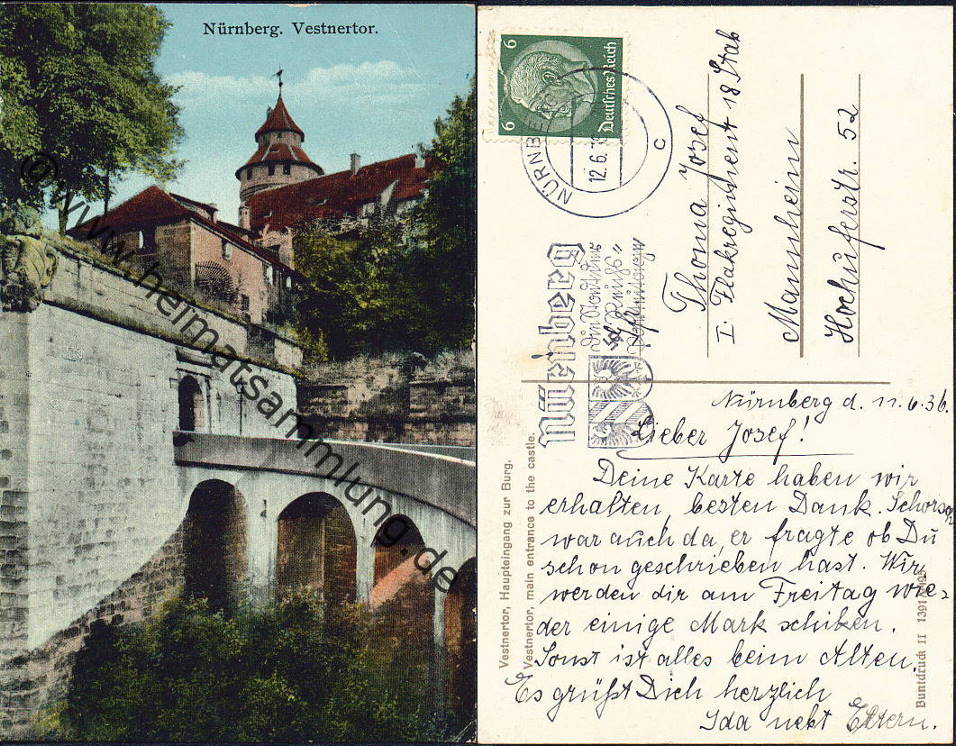 Nürnberg. Vestnertor.
@ www.heimatsammlung.de
6 Deutsches Reich 6
12.6.
c
Nürnberg
Thoma Josef
I. Flakregiment 18 Stab
Mannheim
Hochuferstr. 52
Nürnberg d. 11.6.36.
Lieber Josef!
Deine Karte haben wir
erhalten, besten Dank. Schorsch
war auch da, er fragte ob Du
schon geschrieben hast. Wir
werden dir am Freitag wie=
der einige Mark schiken.
Sonst ist alles beim Alten.
Es grüßt Dich herzlich
Ida nebt Eltern.
Vestnertor, Haupteingang zur Burg.
Vestnertor, main entrance to the castle.
Buntdruck II